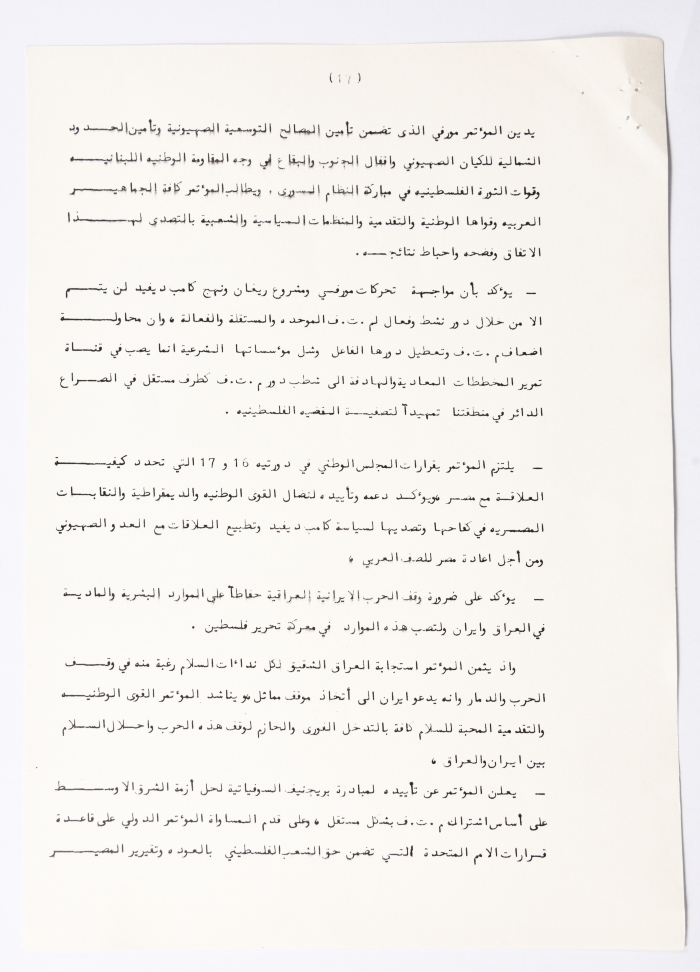 (١٧)
يدين المؤتمر مورفي الذى تضمن تأمين المصالح التوسعية الصهيونية وتأمين الحــدود
الشمالية للكيان الصهيوني واقفال الجنوب والبقاع في وجه المقاومة الوطنيه اللبنانيــه
وقوات الثورة الفلسطينيه في مباركة النظام السورى ، ويطالب المؤتمر كافة الجماهيــر
العربيه وقواها الوطنية والتقدمية والمنظمات السياسية والشعبية بالتصدى لهــذا
الاتفاق وفضحه واحباط نتائجــه .
ــ يؤكد بأن مواجهة تحركات مورفــي ومشروع ريغان ونهج كامب ديفيد لن يتــم
الا من خلال دور نشط وفعال لم .ت.ف الموحده والمستقلة والفعالة ، وان محاولــة
اضعاف م .ت.ف وتعطيل دورها الفاعل وشل مؤسساتها الشرعية انما يصب في قنــاة
تمرير المخططات المعادية والهادفة الى شطب دور م .ت.ف كطرف مستقل في الصــراع
الدائر في منطقتنا تمهيداً لتصفيــة القضيه الفلسطينيه .
ــ يلتزم المؤتمر بقرارات المجلس الوطني في دورتيه 16 و 17 التي تحدد كيفيــة
العلاقة مع مصــر ،ويؤكــد دعمه وتأييده لنضال القوى الوطنيه والديمقراطية والنقابــات
المصريه في كفاحها وتصديها لسياسة كامب ديفيد وتطبيع العلاقات مع العدو الصهيوني
ومن أجل اعادة مصر للصف العربي ،
ــ يؤكد على ضرورة وقف الحرب الايرانية العراقية حفاظاً على الموارد البشرية والماديــة
في العراق وايران ولتصب هذه الموارد في معركة تحرير فلسطين .
واذ يثمن المؤتمر استجابة العراق الشقيق لكل نداءات السلام رغبة منه في وقــف
الحرب والدمار وانه يدعو ايران الى أتخاذ موقف مماثل ،و يناشد المؤتمر القوى الوطنيــه
والتقدمية المحبة للسلام كافة بالتدخل الفورى والحازم لوقف هذه الحرب واحلال الســلام
بين ايران والعراق ،
ــ يعلن المؤتمر عن تأييده لمبادرة بريجنيف السوفياتية لحل أزمة الشرق الاوســط
على أساس اشتراك م .ت.ف بشكل مستقل ، وعلى قدم المساواة المؤتمر الدولي على قاعدة
قرارات الامم المتحدة التــي تضمن حق الشعب الفلسطيني بالعوده وتقرير المصيــر